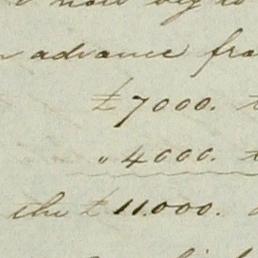 now beg to
advance fra
£7000. t
" 4000. t
the £11.000.